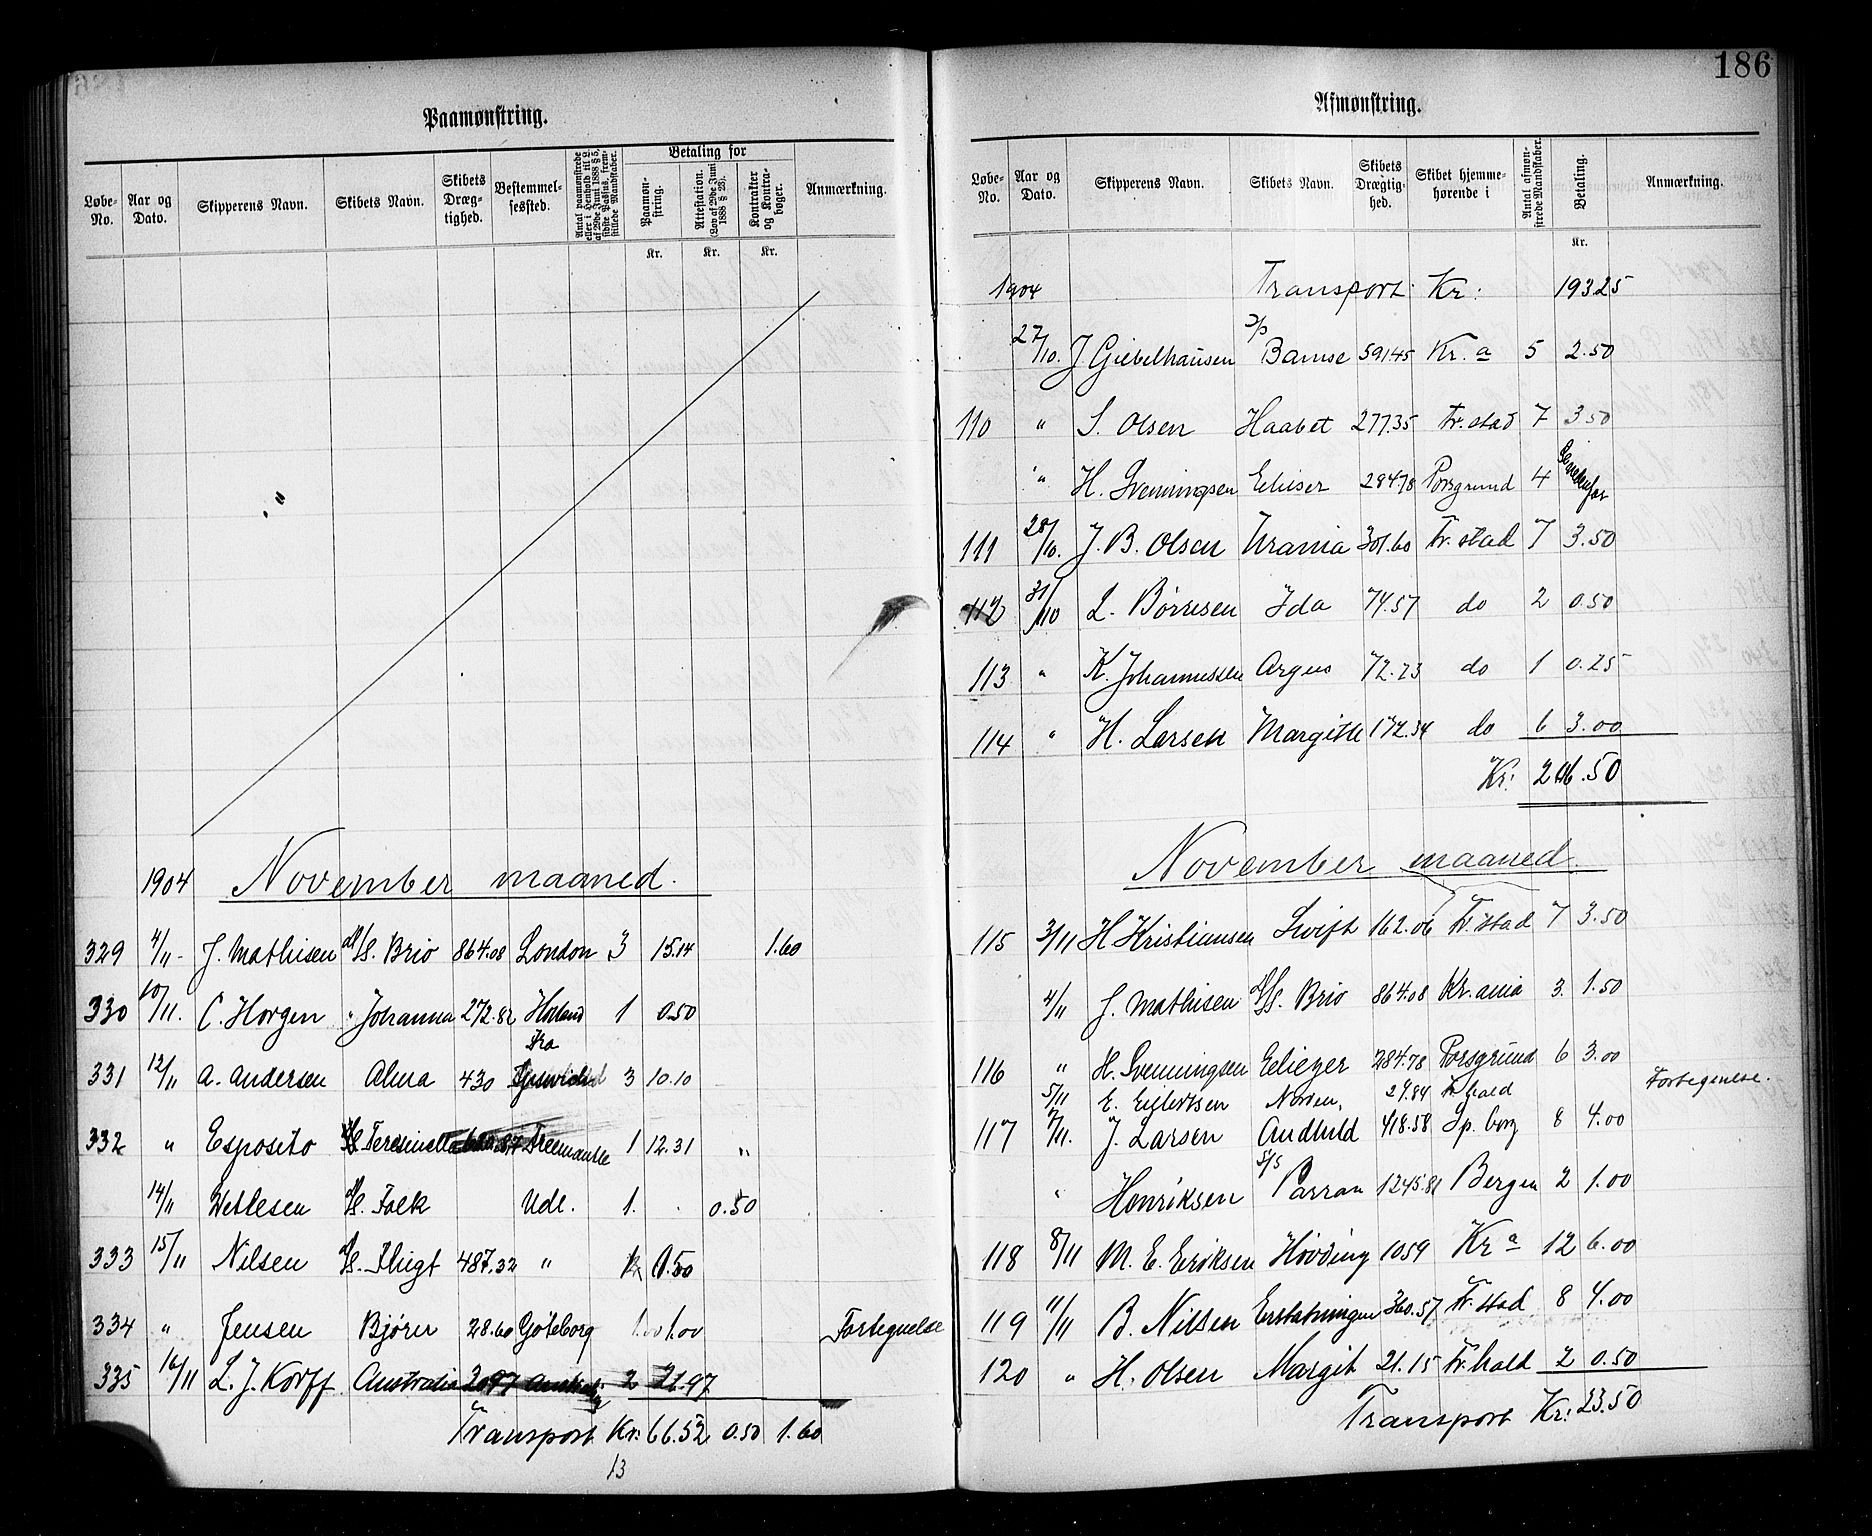 186
Paamønstring.
Løbe-No.
Aar og Dato.
Skipperens Navn.
Skibets Navn.
Skibets Dræg-tighed.
Bestemmel-sessted.
Antal paamønstrede eller i Henhold til L. af 29de Juni 1888 § 5, sidste Passus, frem-stillede Mandskaber.
Betaling for
Paamøn-string.
Attestation. (Lov af 29de Juni 1888 § 23).
Kontrakter og Kontra-bøger.
Anmærkning.
Kr. Kr. Kr.
"
1904 November maaned.
329 4/11 J. Mathisen S. Brio 864.08 London 3 15.14 1.60
330 10/11. C. Horgen " Johanna 272.82 1 0.50
331 12/11 A. Andersen Alma 430 3 10.10
332 " Esposito Teresinella Freemantle 1 12.31 "
14/11 Wetlesen S. Falk Udl. 1. 0.50
333 15/11 Nilsen S. Flugt 487.32 " 0.50
334 " Jensen Bjørn 28.60 Göteborg 1.00 1.00 Fortegnelse
335 16/11 L. J. Korff Australia 2097 2 21.97
Transport Kr: 66.52 0.50 1.60
13
Afmønstring.
Løbe-No.
Aar og Dato.
Skipperens Navn.
Skibets Navn.
Skibets Drægtig-hed.
Skibet hjemme-hørende i
Antal afmøn-strede Mandskaber.
Betaling.
Anmærkning.
Kr.
1904 Transport Kr: 193 25
27/10. J Giebelhausen Bamse 591.45 Kr.a 5 2.50
110 " S. Olsen Haabet 277.35 Fr.stad 7 3.50
" H. Svenningsen Elieser 284.78 Porsgrund 4
111 28/10. J. B. Olsen Urania 301.60 Fr.stad 7 3.50
112 31/10 L. Børresen Ida 74.57 do 2 0.50
113 " K. Johannessen Argus 72.23 do 1 0.25
114 " H. Larsen Margithe 172.34 do 6 3.00
Kr: 206.50
November maaned.
115 3/11 H Kristiansen Swift 162.06 Fr.stad 7 3.50
4/11 J. Mathisen S. Brio 864.08 Kr.ania 3. 1.50
116 " H. Svenningsen Eliezer 284.78 Porsgrund 6 3.00
5/11 E. Eilertsen Norden, 29.84 Fr.hald Fortegnelse.
117 7/11. J. Larsen Audhild 418.58 Sp.borg 8 4.00
" Henriksen S/S Parran 1245.81 Bergen 2 1.00
118 8/11 M. E. Eriksen Høvding 1059 Kr a 12 6.00
119 11/11 B. Nilsen Erstatningen 360.57 Fr.stad 8 4.00
120 " H. Olsen Margit 21.15 Fr.hald 2 0.50
Transport Kr: 23.50